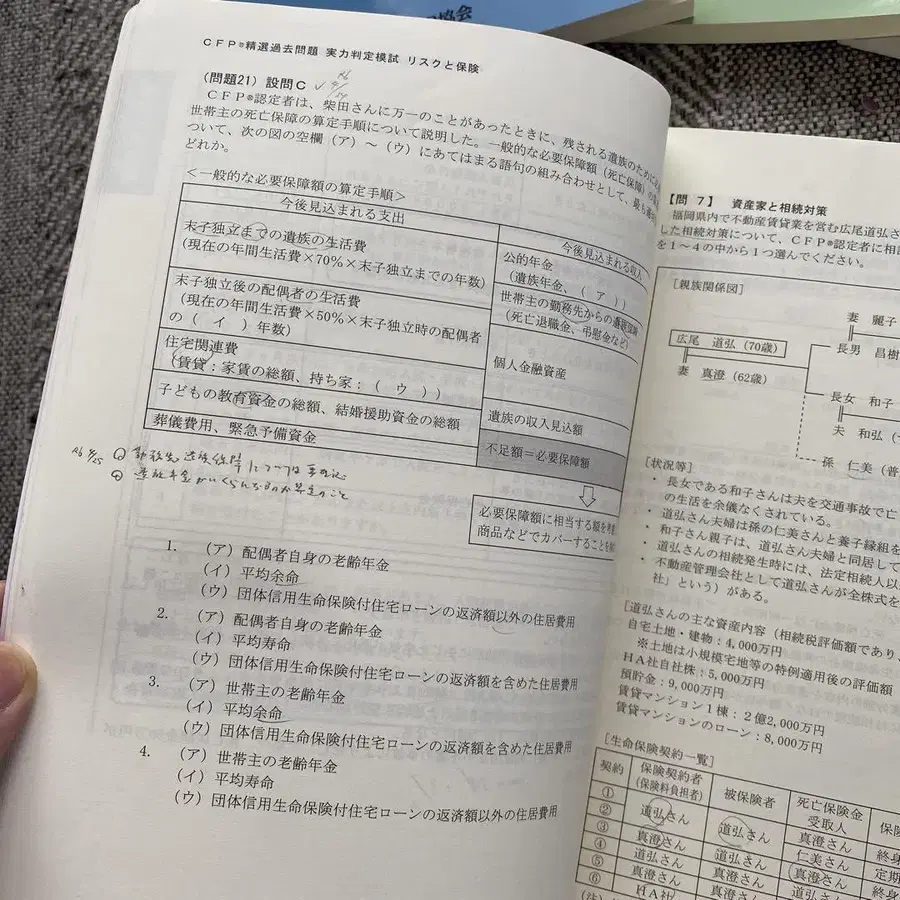 協会
CFP®精選過去問題 実力判定模試 リスクと保険
(問題21) 設問C
CFP®認定者は、柴田さんに万一のことがあったときに、残される遺族のために
世帯主の死亡保障の算定手順について説明した。一般的な必要保障額(死亡保障)の
ついて、次の図の空欄(ア)~(ウ)にあてはまる語句の組み合わせとして、最も
どれか。
<一般的な必要保障額の算定手順>
今後見込まれる支出
末子独立までの遺族の生活費
(現在の年間生活費×70%×末子独立までの年数)
末子独立後の配偶者の生活費
(現在の年間生活費×50%×末子独立時の配偶者
の( イ )年数)
住宅関連費
(賃貸:家賃の総額、持ち家:( ウ ))
子どもの教育資金の総額、結婚援助資金の総額
葬儀費用、緊急予備資金
今後見込まれる収入
公的年金
(遺族年金、( ア ))
世帯主の勤務先からの遺族
(死亡退職金、弔慰金など)
個人金融資産
遺族の収入見込額
不足額=必要保障額
必要保障額に相当する額を
商品などでカバーすること
1. (ア)配偶者自身の老齢年金
(イ)平均余命
(ウ)団体信用生命保険付住宅ローンの返済額以外の住居費用
2. (ア)配偶者自身の老齢年金
(イ)平均寿命
(ウ)団体信用生命保険付住宅ローンの返済額を含めた住居費用
3. (ア)世帯主の老齢年金
(イ)平均余命
(ウ)団体信用生命保険付住宅ローンの返済額を含めた住居費用
4. (ア)世帯主の老齢年金
(イ)平均寿命
(ウ)団体信用生命保険付住宅ローンの返済額以外の住居費用
【問 7】 資産家と相続対策
福岡県内で不動産賃貸業を営む広尾道弘さ
した相続対策について、CFP®認定者に相
を1~4の中から1つ選んでください。
[親族関係図]
妻 麗子
広尾 道弘(70歳)
長男 昌樹
妻 真澄(62歳)
長女 和子
夫 和弘
孫 仁美(普
[状況等]
・ 長女である和子さんは夫を交通事故で亡
の生活を余儀なくされている。
・ 道弘さん夫婦は孫の仁美さんと養子縁組を
・ 和子さん親子は、道弘さん夫婦と同居して
・ 道弘さんの相続発生時には、法定相続人以
・ 不動産管理会社として道弘さんが全株式を
社」という)がある。
[道弘さんの主な資産内容(相続税評価額であり、
自宅土地・建物:4,000万円
※土地は小規模宅地等の特例適用後の評価額
HA社自社株:5,000万円
預貯金:9,000万円
賃貸マンション1棟:2億2,000万円
賃貸マンションのローン:8,000万円
[生命保険契約一覧]
契約 保険契約者 被保険者 死亡保険金
(保険料負担者) 受取人
① 道弘さん 道弘さん 真澄さん 終身
② 仁美さん 定期
③ 真澄さん
④ 道弘さん 道弘さん 真澄さん
⑤ 真澄さん 真澄さん 道弘さん 終身
⑥ HA社